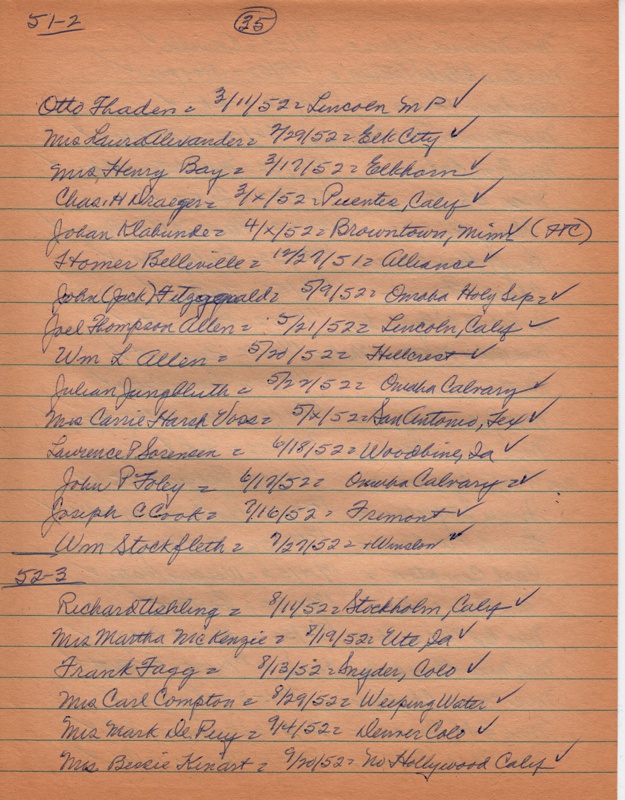 51-2 35
Otto Thaden = 3/11/52 = Lincoln M P ✓
Mrs Laura Alexander = 2/29/52 = Elk City ✓
Mrs Henry Bay = 3/17/52 = Elkhorn ✓
Chas. H Draeger = 3/x/52 = Puente, Calif ✓
Johan Klabunde = 4/x/52 = Browntown, Minn ✓
Homer Belleville = 12/27/51 = Alliance ✓
John (Jack) Fitzgerald = 5/9/52 = Omaha Holy Sep = ✓
Joel Thompson Allen = 5/21/52 = Lincoln, Calif ✓
Wm L Allen = 5/20/52 = Hillcrest ✓
Julian Jungbluth = 5/27/52 = Omaha Calvary ✓
Mrs Carrie Harsh Voss = 5/x/52 = San Antonio, Tex ✓
Lawrence P Sorensen = 6/18/52 = Woodbine, Ia ✓
John P Foley = 6/17/52 = Omaha Calvary = ✓
Joseph C Cook = 7/16/52 = Fremont ✓
Wm Stockfleth = 7/27/52 = Winslow ✓
52-3
Richard Uehling = 8/14/52 = Stockholm, Calif ✓
Mrs Martha McKenzie = 8/19/52 = Ute, Ia ✓
Frank Fagg = 8/13/52 = Snyder, Colo ✓
Mrs Carl Compton = 8/29/52 = Weeping Water ✓
Mrs Mark De Puy = 9/4/52 = Denver Colo ✓
Mrs Bessie Kinart = 9/20/52 = No Hollywood Calif ✓